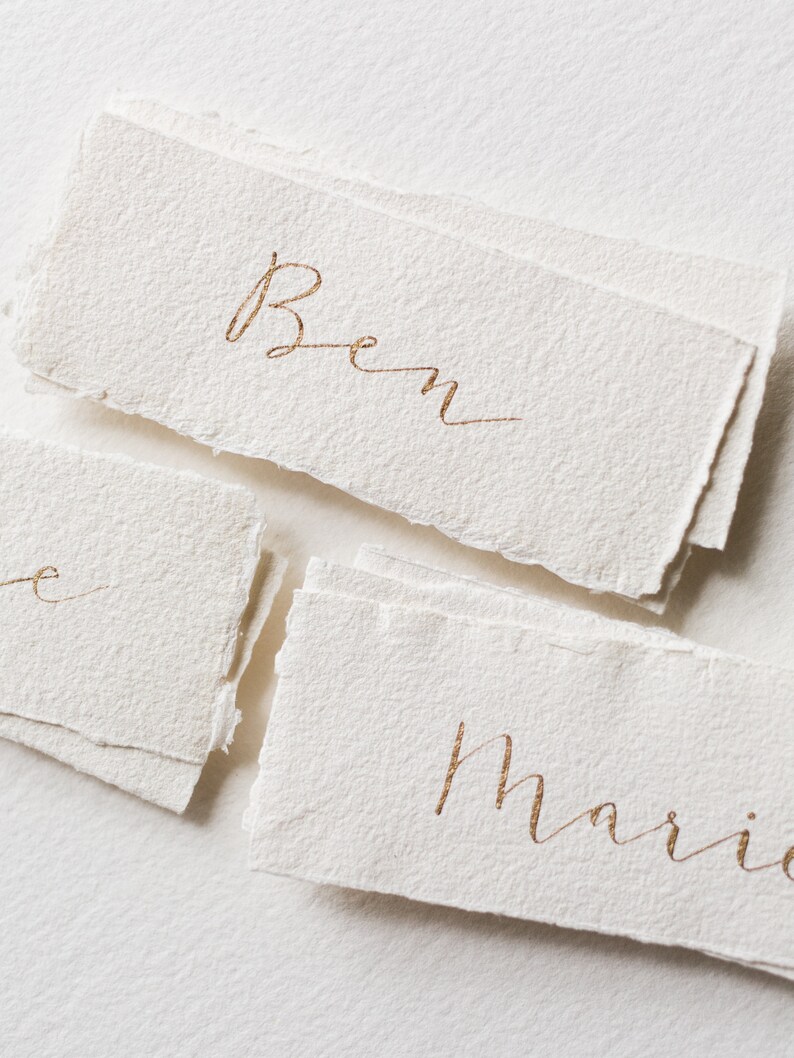 Ben
e
Marie